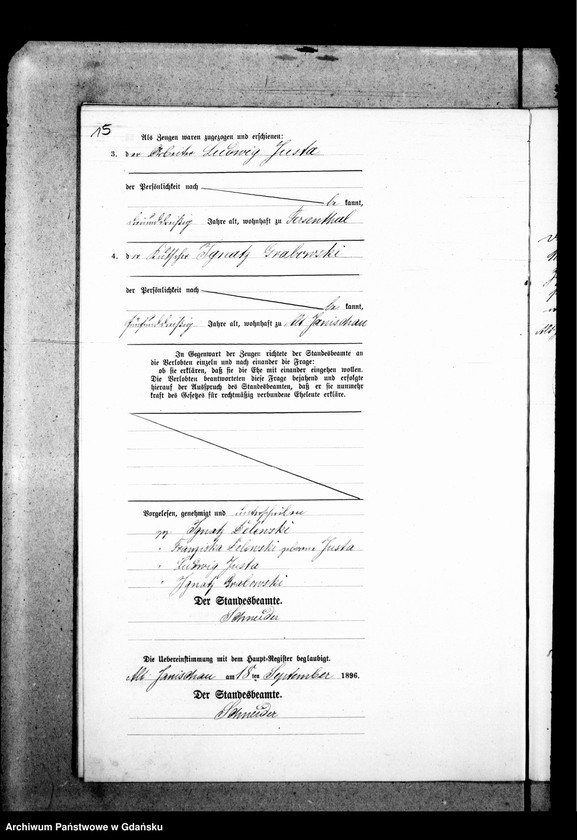 15
Als Zeugen waren zugezogen und erschienen:
3. der Arbeiter Ludwig Justa
der Persönlichkeit nach
be kannt,
dreiunddreißig Jahre alt, wohnhaft zu Fersenthal
4. der Kutscher Ignatz Grabowski
der Persönlichkeit nach
be kannt,
fünfunddreißig Jahre alt, wohnhaft zu Alt Janischau
In Gegenwart der Zeugen richtete der Standesbeamte an
die Verlobten einzeln und nach einander die Frage:
ob sie erklären, daß sie die Ehe mit einander eingehen wollen.
Die Verlobten beantworteten diese Frage bejahend und erfolgte
hierauf der Ausspruch des Standesbeamten, daß er sie nunmehr
kraft des Gesetzes für rechtmäßig verbundene Eheleute erkläre.
Vorgelesen, genehmigt und unterschrieben
gz Ignatz Lelewski
" Franziska Lelewski geborene Justa
" Ludwig Justa
" Ignatz Grabowski
Der Standesbeamte.
Schneider
Die Uebereinstimmung mit dem Haupt-Register beglaubigt.
Alt Janischau am 18 ten September 1896.
Der Standesbeamte.
Schneider
Archiwum Państwowe w Gdańsku